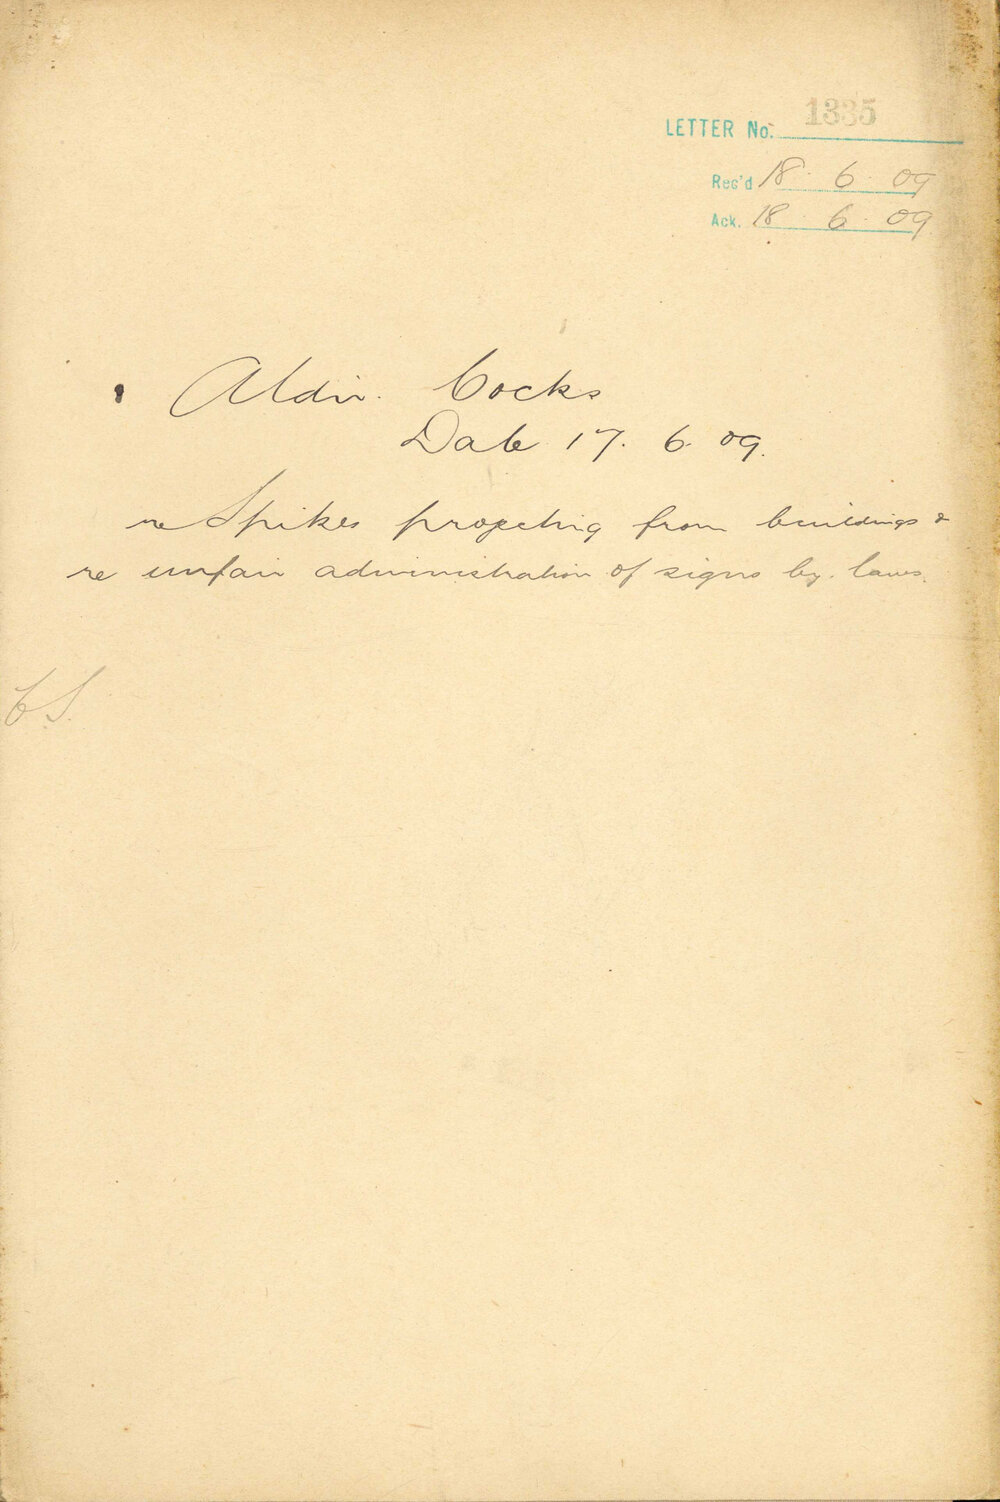 LETTER No. 1335
Rec'd 18. 6. 09
Ack. 18. 6. 09
Aldn. Cocks
Date 17. 6. 09.
re Spikes projecting from buildings &
re unfair administration of signs by-laws.
CS.